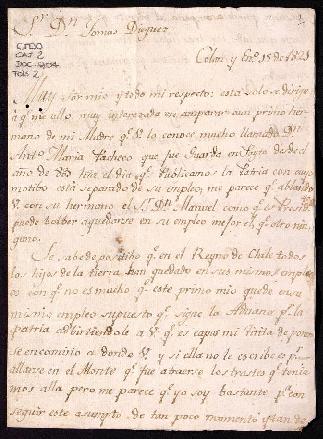 Sr. Dn. Tomas Dieguez
Colan y Eno. 15 de 1821
CAJ 2
DOC
FOLS 2
Muy Sor mio y todo mi respeto: esta solo se dirige
a q. me allo muy interezada me ampare a un primo her
mano de mi Madre q. V. lo conoce mucho llamado Dn
Anto. Maria Pacheco que fue Guarda en Payta desde el
año de hta el dia q. Publicaron la Patria con cuyo
motibo está separado de su empleo, me parece q. ablando
V. con su hermano el Sr. Dn. Manuel como q. es Presidte
puede bolber aquedarse en su empleo mejor q. otro nin
guno.
Se sabe de positibo q. en el Reyno de Chile todos
los hijos de la tierra han quedado en sus mismos emple
os con q. no es mucho q. este primo mio quede en su
mismo empleo supuesto q. sigue la Aduana pr. la
patria adbirtiendole a V. q. es capus mi Taita
se encomino a donde V. y si ella no le escribe es pr
allarse en el Monte q. fue atraerse los trastes q. tenia
mos alla pero me parece q. yo soy bastante pa. con
seguir este asumpto de tan poco momento